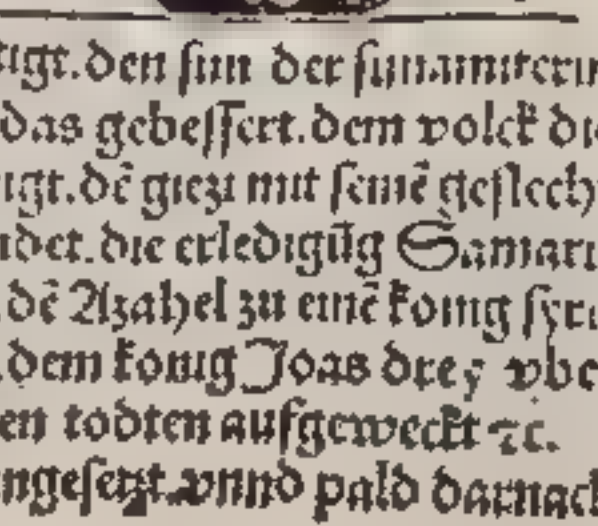 tigt.den sun der sunamiterin
das gebessert.dem volck di
igt.dē giezi mit seinē geslech
ndet.die erledigūg Samari
.dē Azahel zu einē konig syri
.dem konig Joas drey vbe
en todten aufgeweckt ⁊c.
ngesetzt.vnnd pald darnach